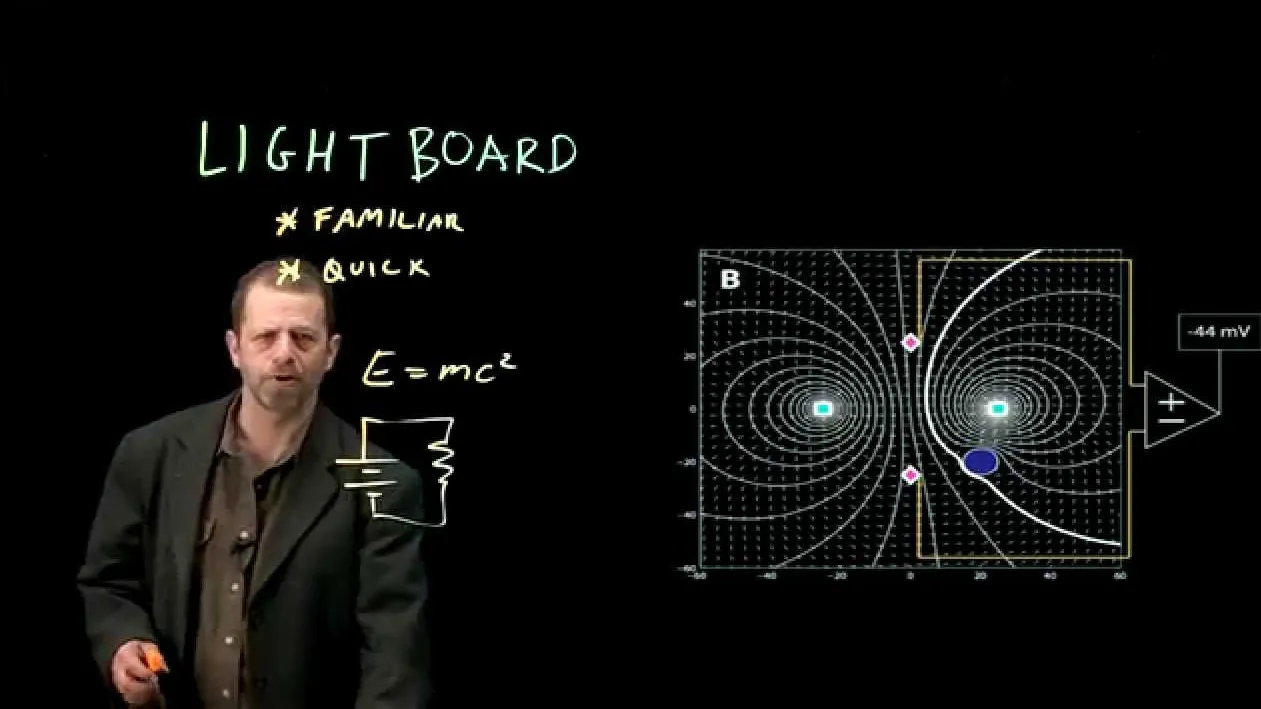 LIGHTBOARD
* FAMILIAR
* QUICK
E = mc²
B
-44 mV
+
−
40
20
0
-20
-40
-60
-60 -40 -20 0 20 40 60